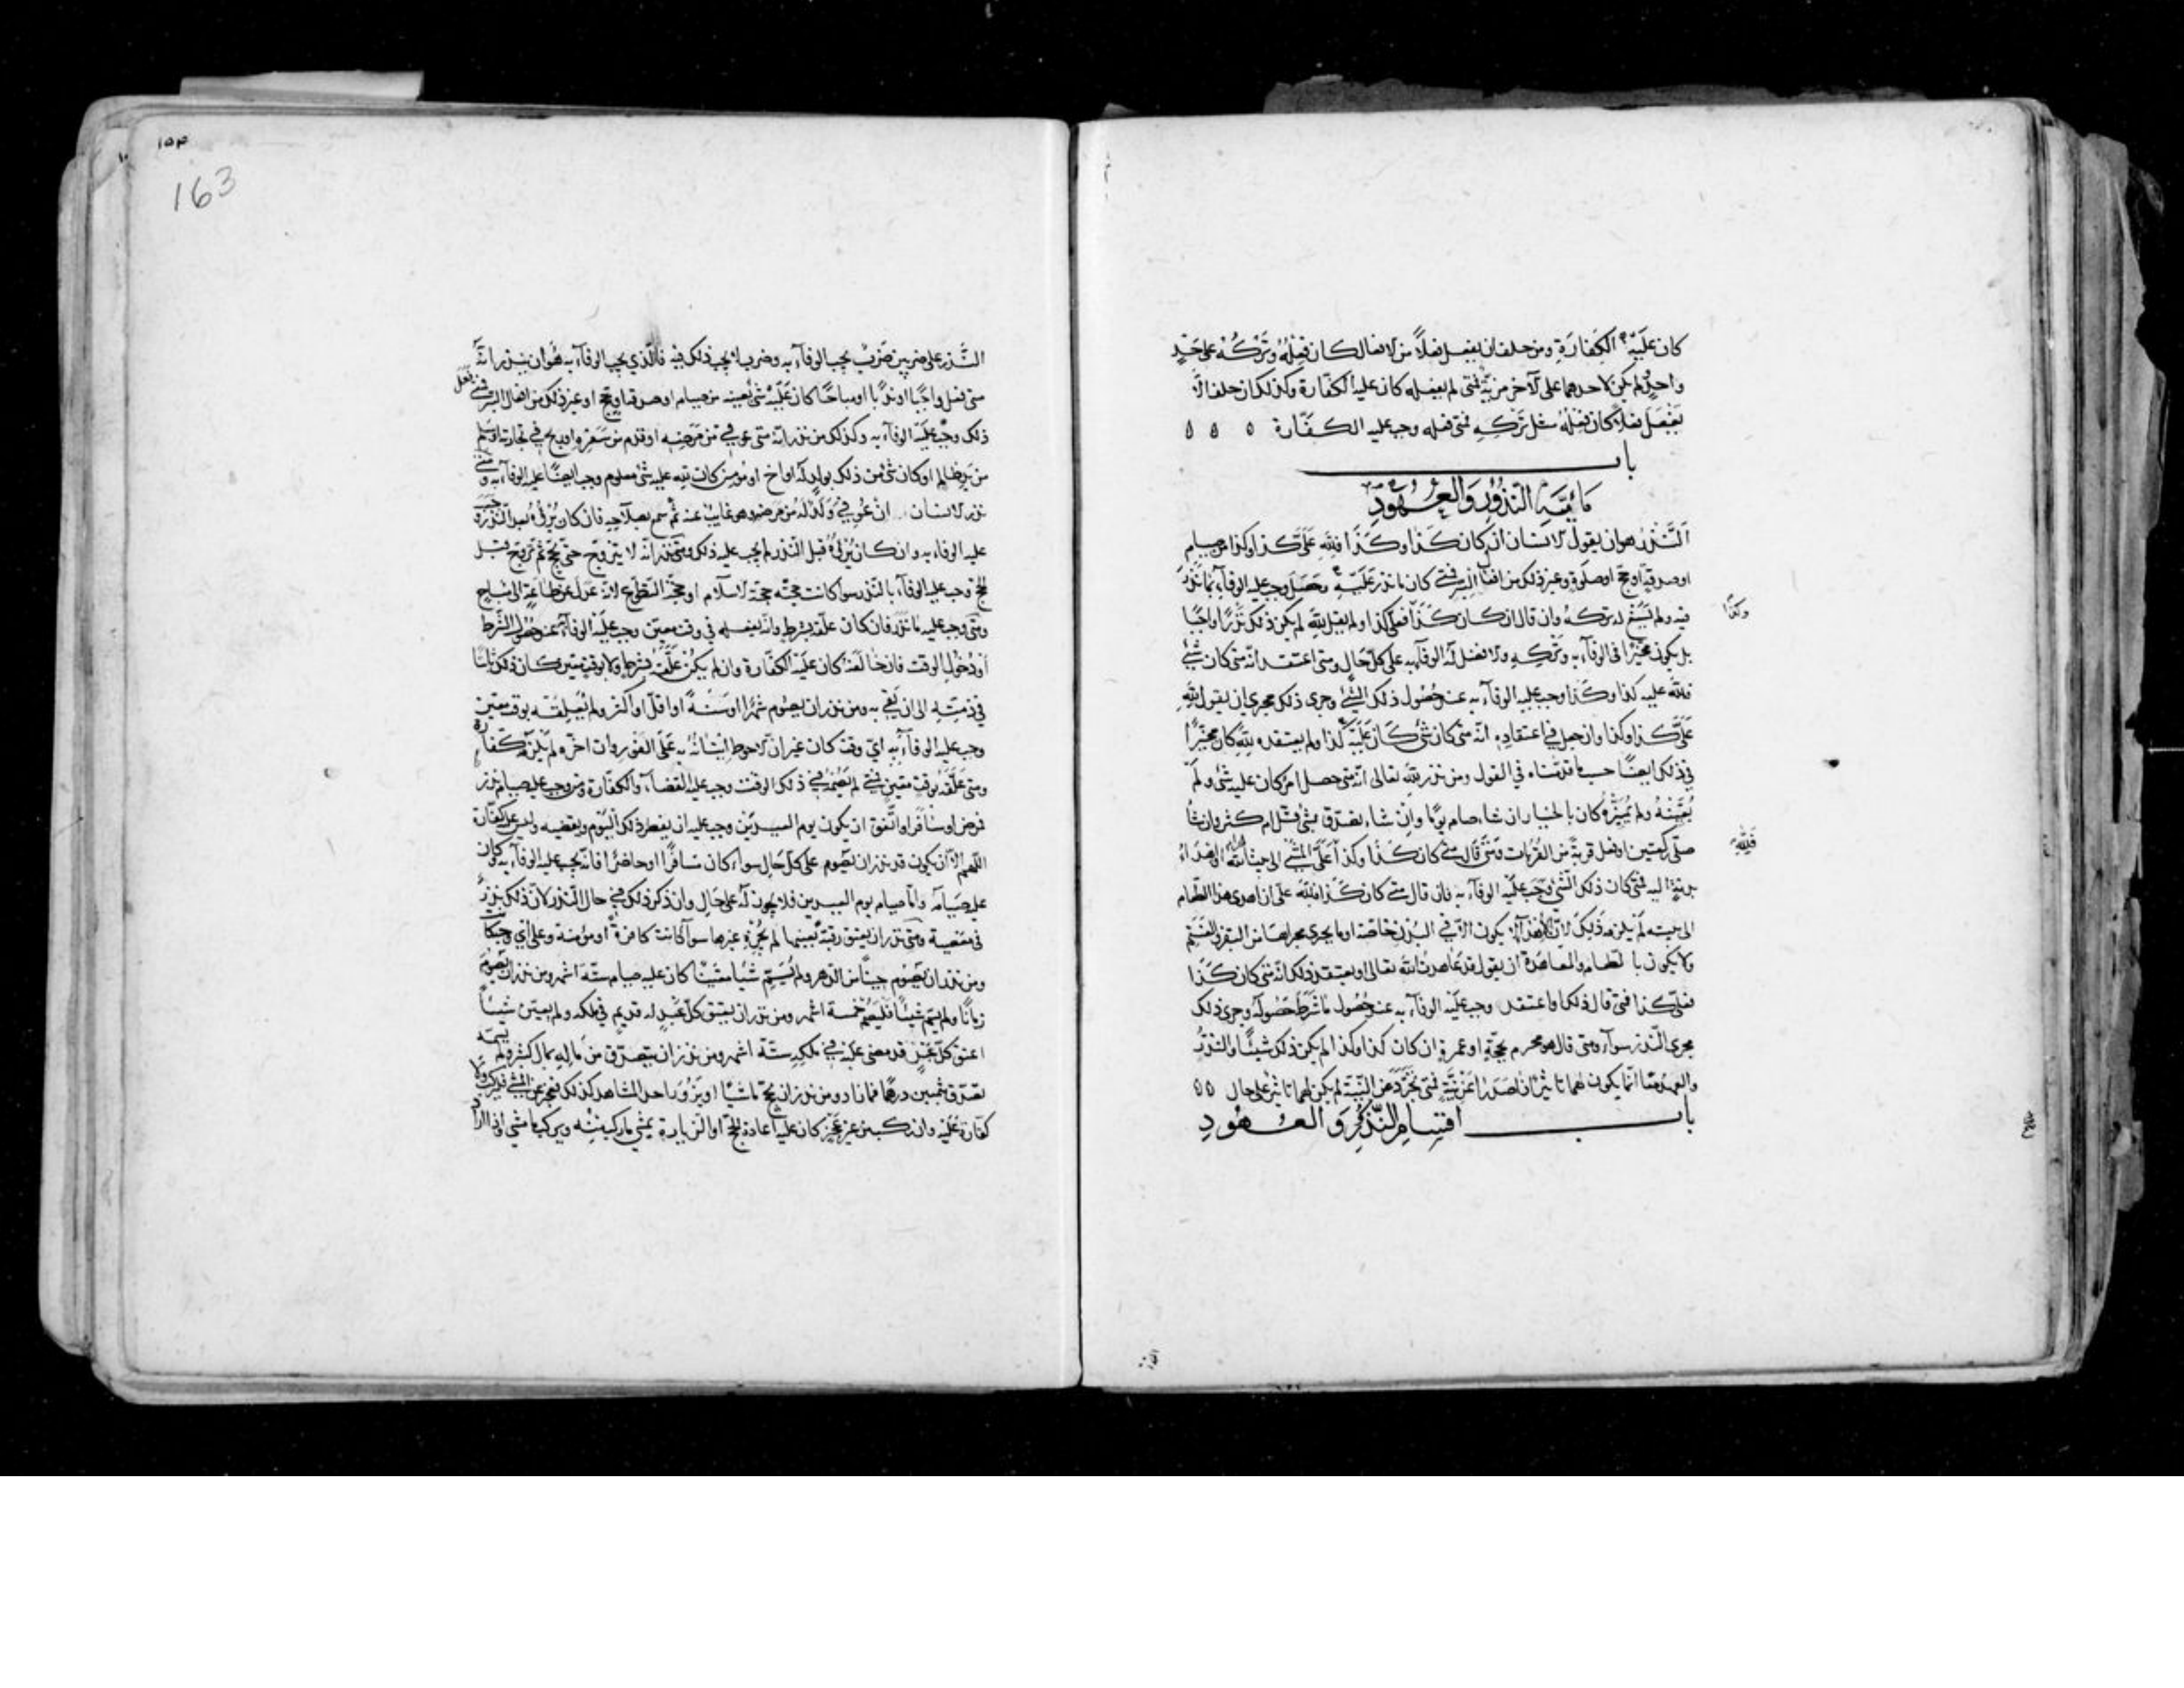 كان عَلَيْهِ الكَفّارَة ومن حلف ان يفعل فعلاً من الافعال كان فِعْلُهُ وتَرْكُهُ على حَدٍّ
واحدٍ ولم يكن لاحدهما على الآخر مزيّة فمتى لم يفعله كان عليه الكفّارة وكذلك ان حلف الّا
يَفْعَلَ فعلاً كان فعلُهُ مثل تَرْكِهِ فمتى فعله وجب عليه الكفّارة ٥ ٥ ٥
باب
مَائيَّةِ النّذُوْرِ وَالعُهُودِ
اَلنَّذْرُ هو ان يقول الانسان ان كان كَذا وكَذَا فللّهِ عَلَىَّ كذا وكذا من صيام
او صدقة او حج او صلوة وغير ذلك من افعال البر فمتى كان ما نذر عَلَيْهِ وحَصَلَ وجب عليه الوفآء بما نَذَرَ
فيه ولم يَسُغ له تركهُ وان قال ان كان كَذَا فعلىّ كذا ولم يقل للّه لم يكن ذلك نَذْرًا واجبًا
بل يكون مخيّرًا فى الوفآء به وتَرْكِهِ والافضل لَهُ الوفآء به على كلّ حَالٍ ومتى اعتقد انّه متى كان شَىْءٌ
فللّه عليه كذا وكَذا وجب عليه الوفآء به عند حُصُول ذلك الشّىء وجرى ذلك مجرى ان يقول للّهِ
عَلَىَّ كذا وكذا وان جعل في اعتقادِهِ انّه متى كان شىءٌ كَانَ عَلَيْهِ كذا ولم يعتقده للّهِ كان مخيّرًا
فى ذلك ايضًا حسب ما قدّمناه في القول ومن نذر للّهِ تعالى انّه متى حصل امرٌ كان عليه شىء ولَمْ
يُعَيّنهُ ولم يُمَيِّزهُ كان بالخيار ان شاء صام يومًا وان شاء تصدّق بشىءٍ قلّ ام كثر وان شَاءَ
صلّى ركعتين او فعل قربةً من القُرُبات ومَتى قال متى كان كَذا وكذا
بدنةٍ اليه فمتى كان ذلك الشّىء وَجَب عَلَيْه الوفآء به فان قال متى كان كَذَا فللّهِ علىّ ان اهدى هذا الطّعام
الى بيته لَم يلزمه ذَلِكَ لانّ الاهدآء لا يكون الّا في البُدْنِ خاصّةً او ما يجرى مجراها من البقر والغَنَمِ
ولا يكون بالطّعام والمعاهدة ان يقول قد عَاهدتُ اللّه تعالى او يعتقد ذلك انّه متى كان كَذَا
فعلىَّ كذا فمتى قال ذلك او اعتقد وجب عليْه الوفآء به عند حُصُول ما شَرَطَ حُصُولَهُ وجرى ذلك
مجرى النّذر سوآء ومتى قال هو محرم بحجّةٍ او عمرةٍ ان كان كذا وكذا لم يكن ذلك شيئًا والنّذرُ
والعهد معًا انّما يكون لهما تاثيرٌ اذا صَدرا عَن نِيَّةٍ فمتى تجَرّد عن النّيّة لم يكن لهما تاثيرٌ على حال ٥٥
باب اقسام النَّذُوْرِ وَالعُهُودِ
وكذا
فَلِلّهِ
١٥٣
163
النَّذر على ضربين ضَربٌ يجب الوفآء به وضربٌ لا يجب ذلك فيه فالّذي يجب الوفآء به هُو ان ينذر انّهُ
متى فعل واجبًا او ندبًا او مباحًا كان عَلَيْهِ شىءٌ بعينه من صيام او صدقة او حج او غير ذلك من افعال البر فمتى فَعَلَ
ذلك وجب عليْه الوفآء به وكذلك من نذر انّه متى عوفي من مَرَضِهِ او قدم من سَفَرِه او ربح في تجارته او سَلِم
من يَدِ ظالم او كان شىءٌ من ذلك بولدٍ له او اخ او مؤمنٍ كان للّهِ عليه شىءٌ معلوم وجب ايضًا عليه الوفآء به ومتى
نذر الانسان انْ عُوفِيَ وَلَدٌ لَهُ مِنْ مَرَضِهِ وهو غايبٌ عنه ثم سمع بصلاحِهِ فان كان بُرْؤُهُ بعد النَّذْر وَجَبَ
عليه الوفاء به وان كان بُرْؤُهُ قبل النّذر لم يجب عليه ذلك ومتى نذر انّه لا يتزوّج حتّى يحجّ ثم تزوّج قبل
الحجّ وجب عليه الوفآء بالنّذر سوآء كانت حجّته حجّة الاسلام او حجّة التّطوّع لانّه عَدَلَ عن طاعَةٍ الى مُباحٍ
ومتى وجب عليه ما نَذَر فان كان علّقه بشرطٍ وانّه يفعله في وقت معيّن وجب عَلَيْه الوفآء به عند حُصُول الشّرط
اوْ دخُولِ الوقت فان خالَفَهُ كان عَليْه الكفّارة وان لم يكن علَّقه بشرطٍ ولا بوقتٍ معيّن كان ذلك ثابتًا
في ذمّتِه الى ان يَفِي به ومن نذر ان يصُوم شهرًا او سَنَةً او اقلّ او اكثر ولم يُعَلِّقه بوقت معيّنٍ
وجب عليه الوفآء به اىّ وقت كان غير انّ الاحوط اتيَانهُ به عَلَى الفَوْر وان اخّره لم يَلْزَمه كَفّارة
ومتى عَلّقه بوقت معيّنٍ فمتى لم يَصُمْه في ذلك الوقت وجب عليه القضآء والكفّارة ومن وجب عليه صيام نذرٍ
فمرض او سافر او اتّفق ان يكون يوم العيدَيْن وجب عليه ان يفطر ذلك اليَوْم ويقضيه وليس عليه كفّارة
اللّهم الّا ان يكون قد نذر ان يَصُوم على كلّ حَالٍ سوآء كان مسافرًا او حاضرًا فانّه يجب عليه الوفآء به وكان
عليه صيامه وامّا صيام يوم العيدين فلا يجوز لَهُ على حَالٍ وان ذكر ذلك في حال النّذر لانّ ذلك نذرٌ
في مَعصية ومتى نذر ان يعتق رقبةً بعينها لم يُجْزِهِ غيرها سوآء كانت كافرةً او مؤمنة وعلى اىّ وجهٍ كانت
ومن نذر ان يَصُوم حينًا من الدّهر ولم يُسَمّ شيئًا معيّنًا كان عليه صيام ستّة اشهر ومن نذر ان يَصُوْمَ
زمانًا ولم يسمّ شيئًا فليَصُمْ خمسة اشهر ومن نذر ان يعتق كلّ عَبْدٍ له قديمٍ في ملكه ولم يعيّن شيئًا
اعتق كلّ عَبْدٍ قد مضى عليه في ملكِهِ ستّة اشهر ومن نذر ان يتصدّق من مَالِهِ بمالٍ كثيرٍ ولم يسمّه
تصدّق بثمانين درهمًا فما زاد ومن نذر ان يحجّ ماشيًا او يَزُوْرَ احد المشاهد كذلك فعجز عن المشى فليركب ولا
كفّارة عَلَيْه وان ركب من غير عَجْزٍ كان عليه اعادة الحجّ او الزيارة يمشي ما ركب منه ويركب ما مشى